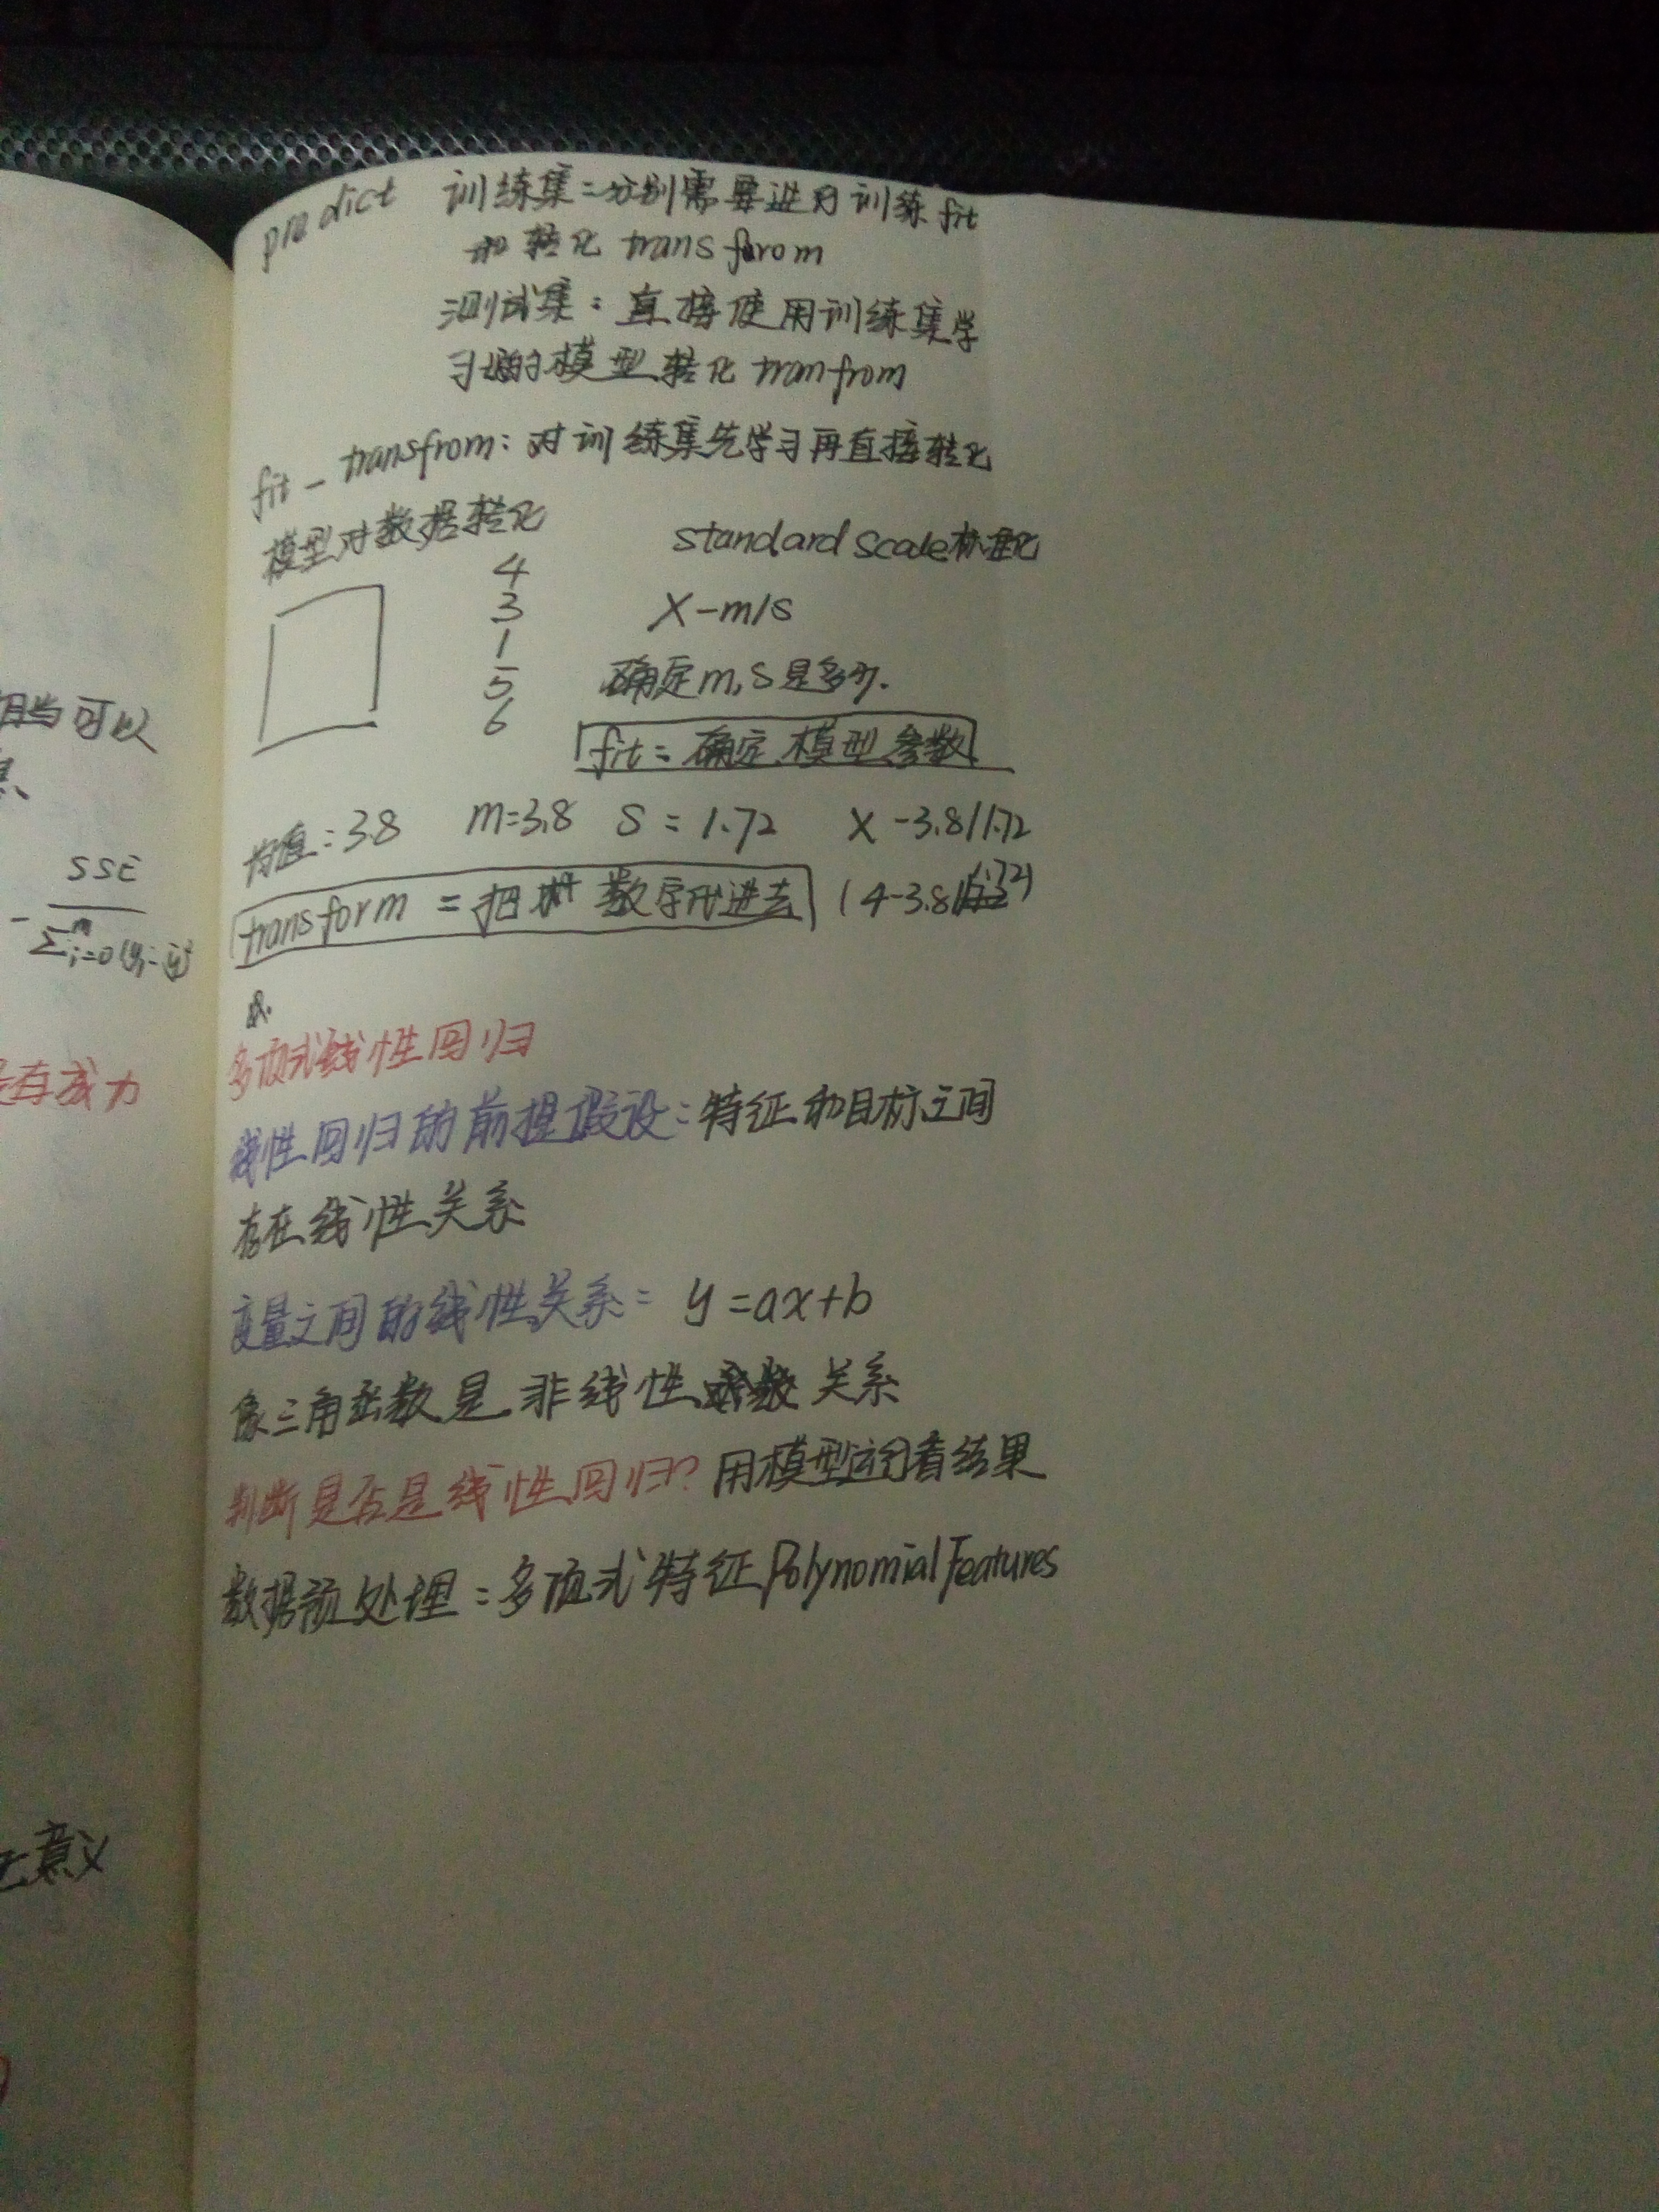 相当可以
SSE
Σᵐi=0(yᵢ-ȳ)²
无意义
predict 训练集:分别需要进行训练fit
和转化 transfrom
测试集:直接使用训练集学
习的模型转化 tranfrom
fit_transfrom:对训练集先学习再直接转化
模型对数据转化
standard scale标准化
4
3
1
5
6
X-m/s
确定m,s是多少.
fit=确定模型参数
均值:3.8 m=3.8 S=1.72 X-3.8/1.72
transform=把数字代进去 (4-3.8/1.72)
多项式线性回归
线性回归的前提假设:特征和目标之间
存在线性关系
变量之间的线性关系: y=ax+b
像三角函数是非线性函数关系
判断是否是线性回归?用模型运行看结果
数据预处理:多项式特征PolynomialFeatures